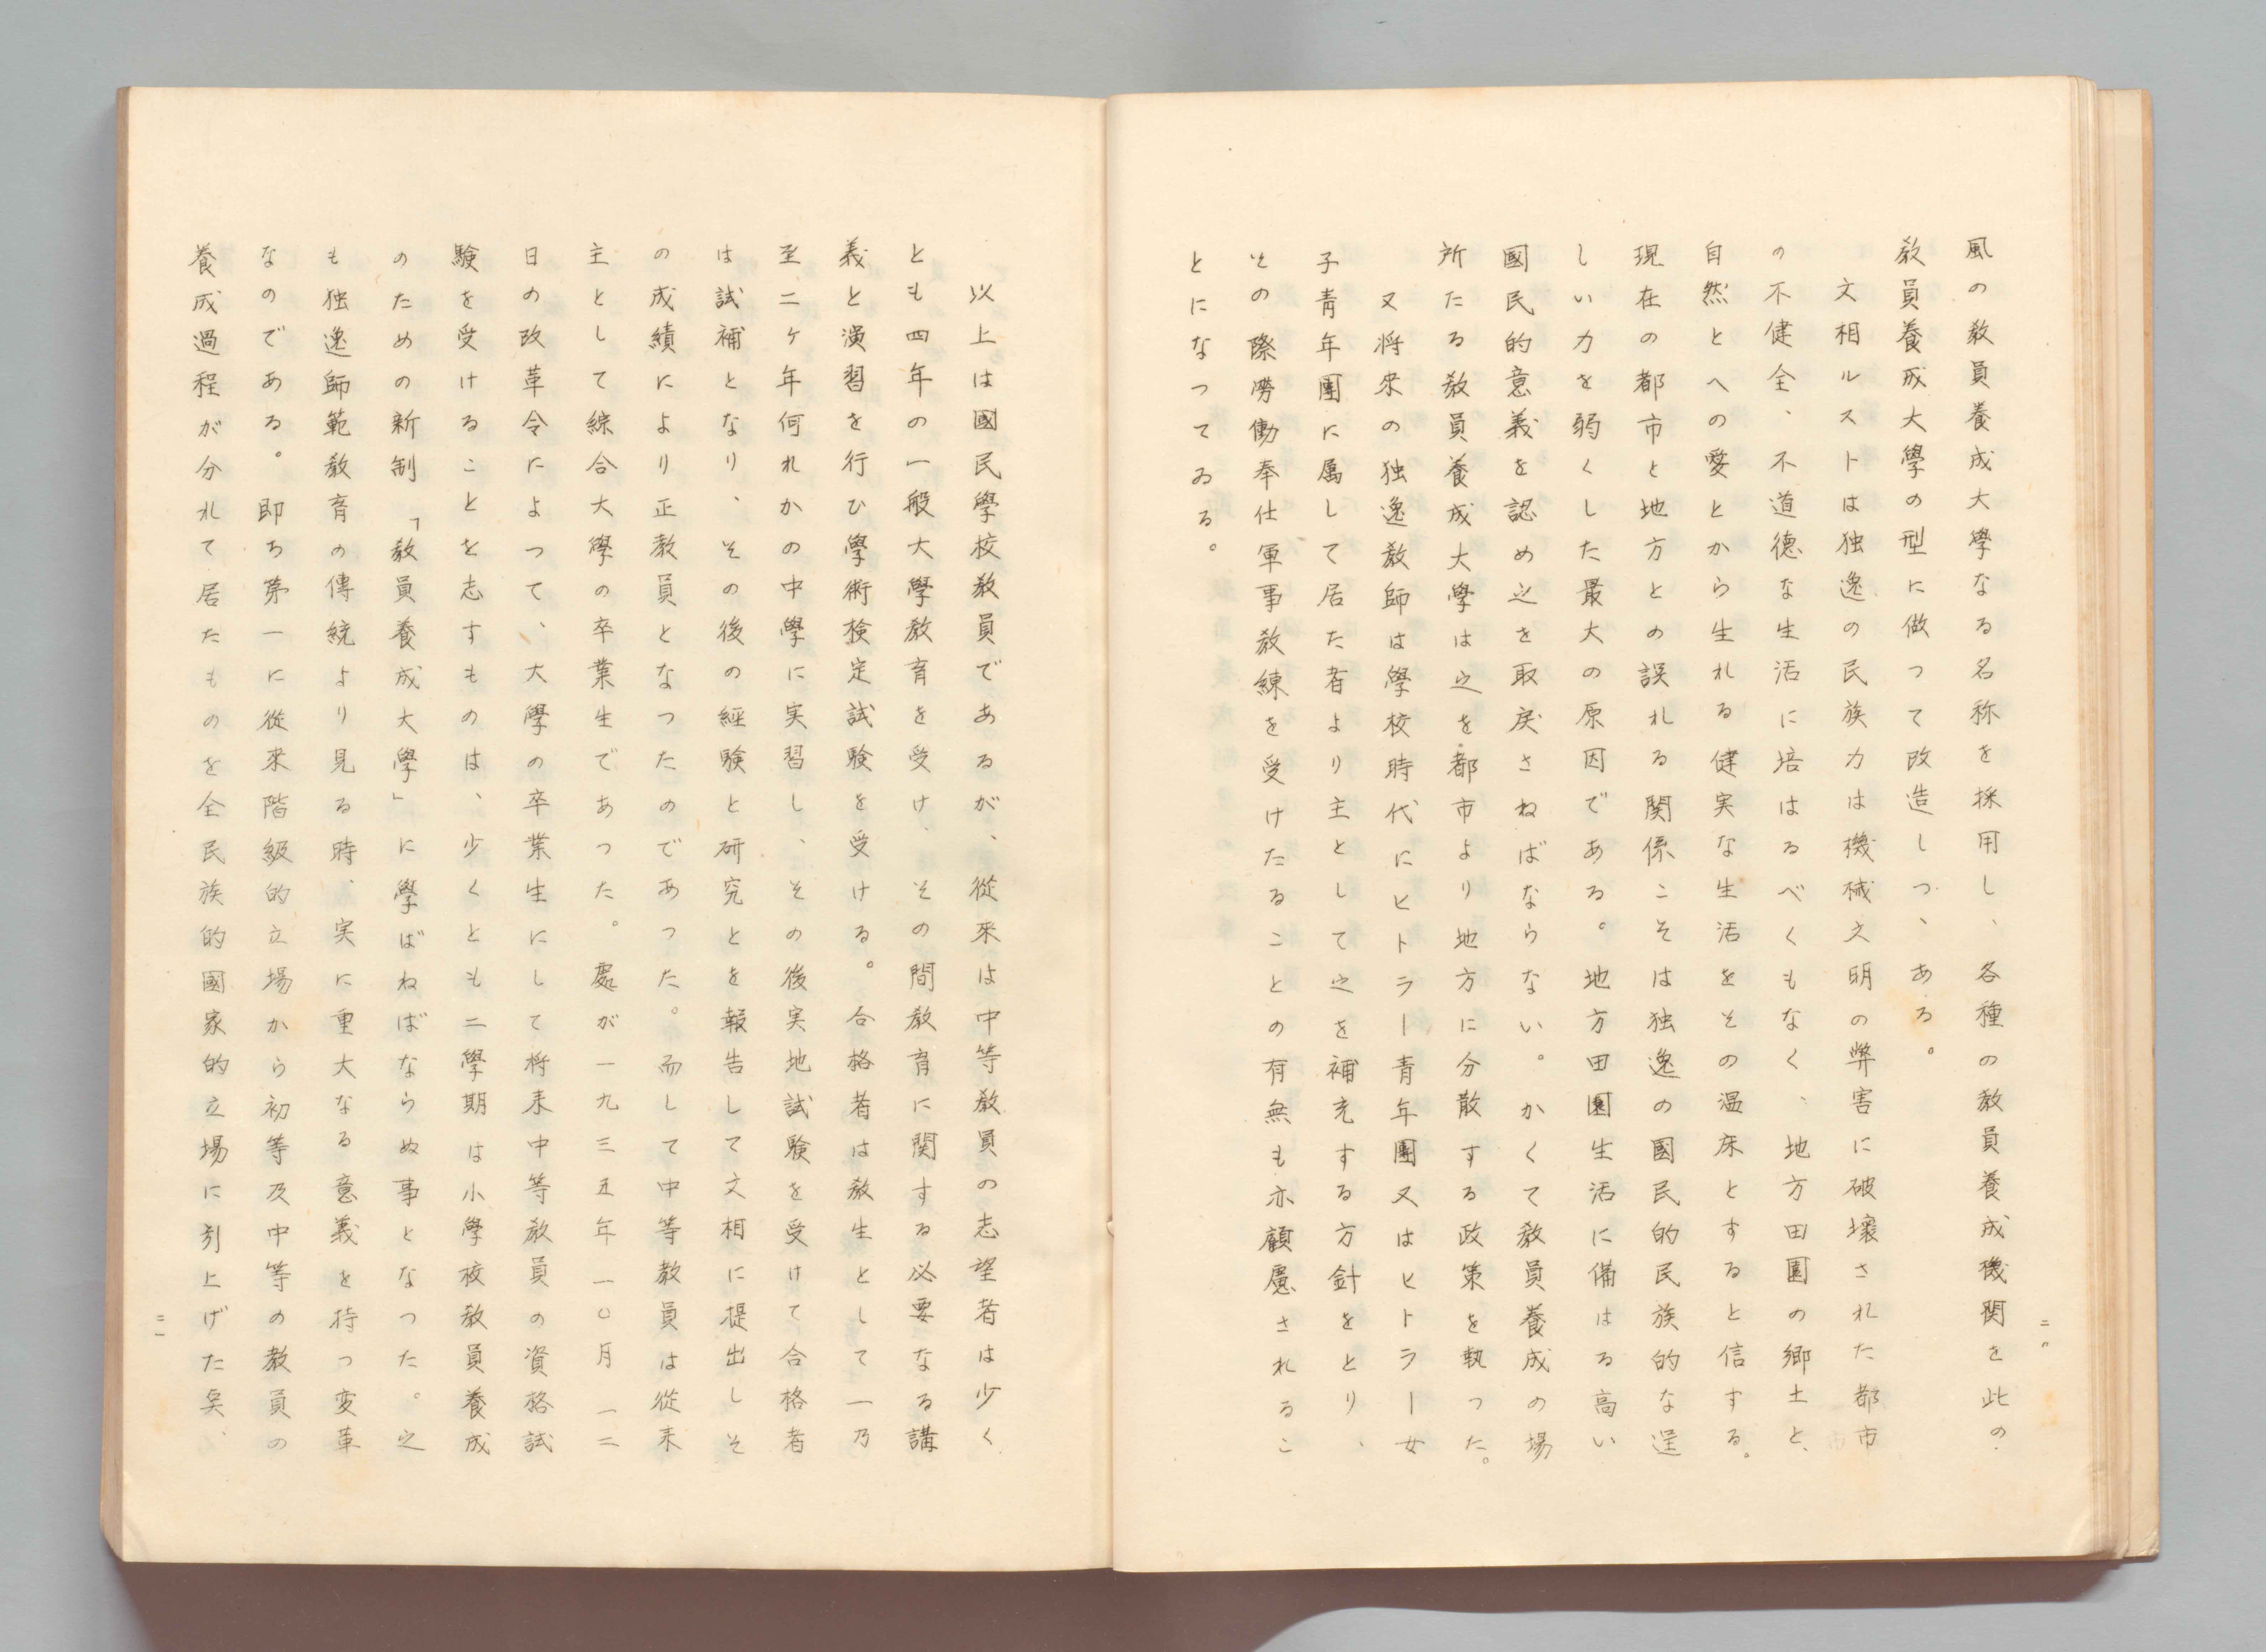 二〇
風の教員養成大學なる名称を採用し、各種の教員養成機関を此の
教員養成大學の型に倣つて改造しつゝある。
文相ルストは独逸の民族力は機械文明の弊害に破壊された都市
の不健全、不道徳な生活に培はるべくもなく、地方田園の郷土と、
自然とへの愛とから生れる健実な生活をその温床とすると信する。
現在の都市と地方との誤れる関係こそは独逸の國民的民族的な逞
しい力を弱くした最大の原因である。地方田園生活に備はる高い
國民的意義を認め之を取戻さねばならない。かくて教員養成の場
所たる教員養成大學は之を都市より地方に分散する政策を執つた。
又将来の独逸教師は學校時代にヒトラー青年團又はヒトラー女
子青年團に属して居た者より主として之を補充する方針をとり、
その際労働奉仕軍事教練を受けたることの有無も亦顧慮されるこ
とになつてゐる。
以上は國民學校教員であるが、從來は中等教員の志望者は少く
とも四年の一般大學教育を受け、その間教育に関する必要なる講
義と演習を行ひ學術検定試験を受ける。合格者は教生として一乃
至二ヶ年何れかの中學に実習し、その後実地試験を受けて合格者
は試補となり、その後の経験と研究とを報告して文相に提出しそ
の成績により正教員となつたのであつた。而して中等教員は從来
主として綜合大學の卒業生であつた。處が一九三五年一〇月一二
日の改革令によつて、大學の卒業生にして将来中等教員の資格試
験を受けることを志すものは、少くとも二學期は小學校教員養成
のための新制「教員養成大學」に學ばねばならぬ事となつた。之
も独逸師範教育の傳統より見る時、実に重大なる意義を持つ変革
なのである。即ち第一に從來階級的立場から初等及中等の教員の
養成過程が分れて居たものを全民族的國家的立場に引上げた矣、
二一